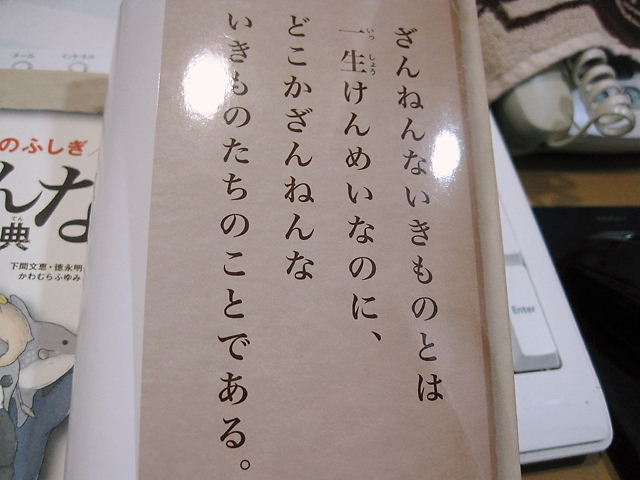 ざんねんないきものとは
一生けんめいなのに、
いっしょう
どこかざんねんな
いきものたちのことである。
のふしぎ
んな
典
てん
下間文恵・徳永明
かわむらふゆみ
メール
Enter